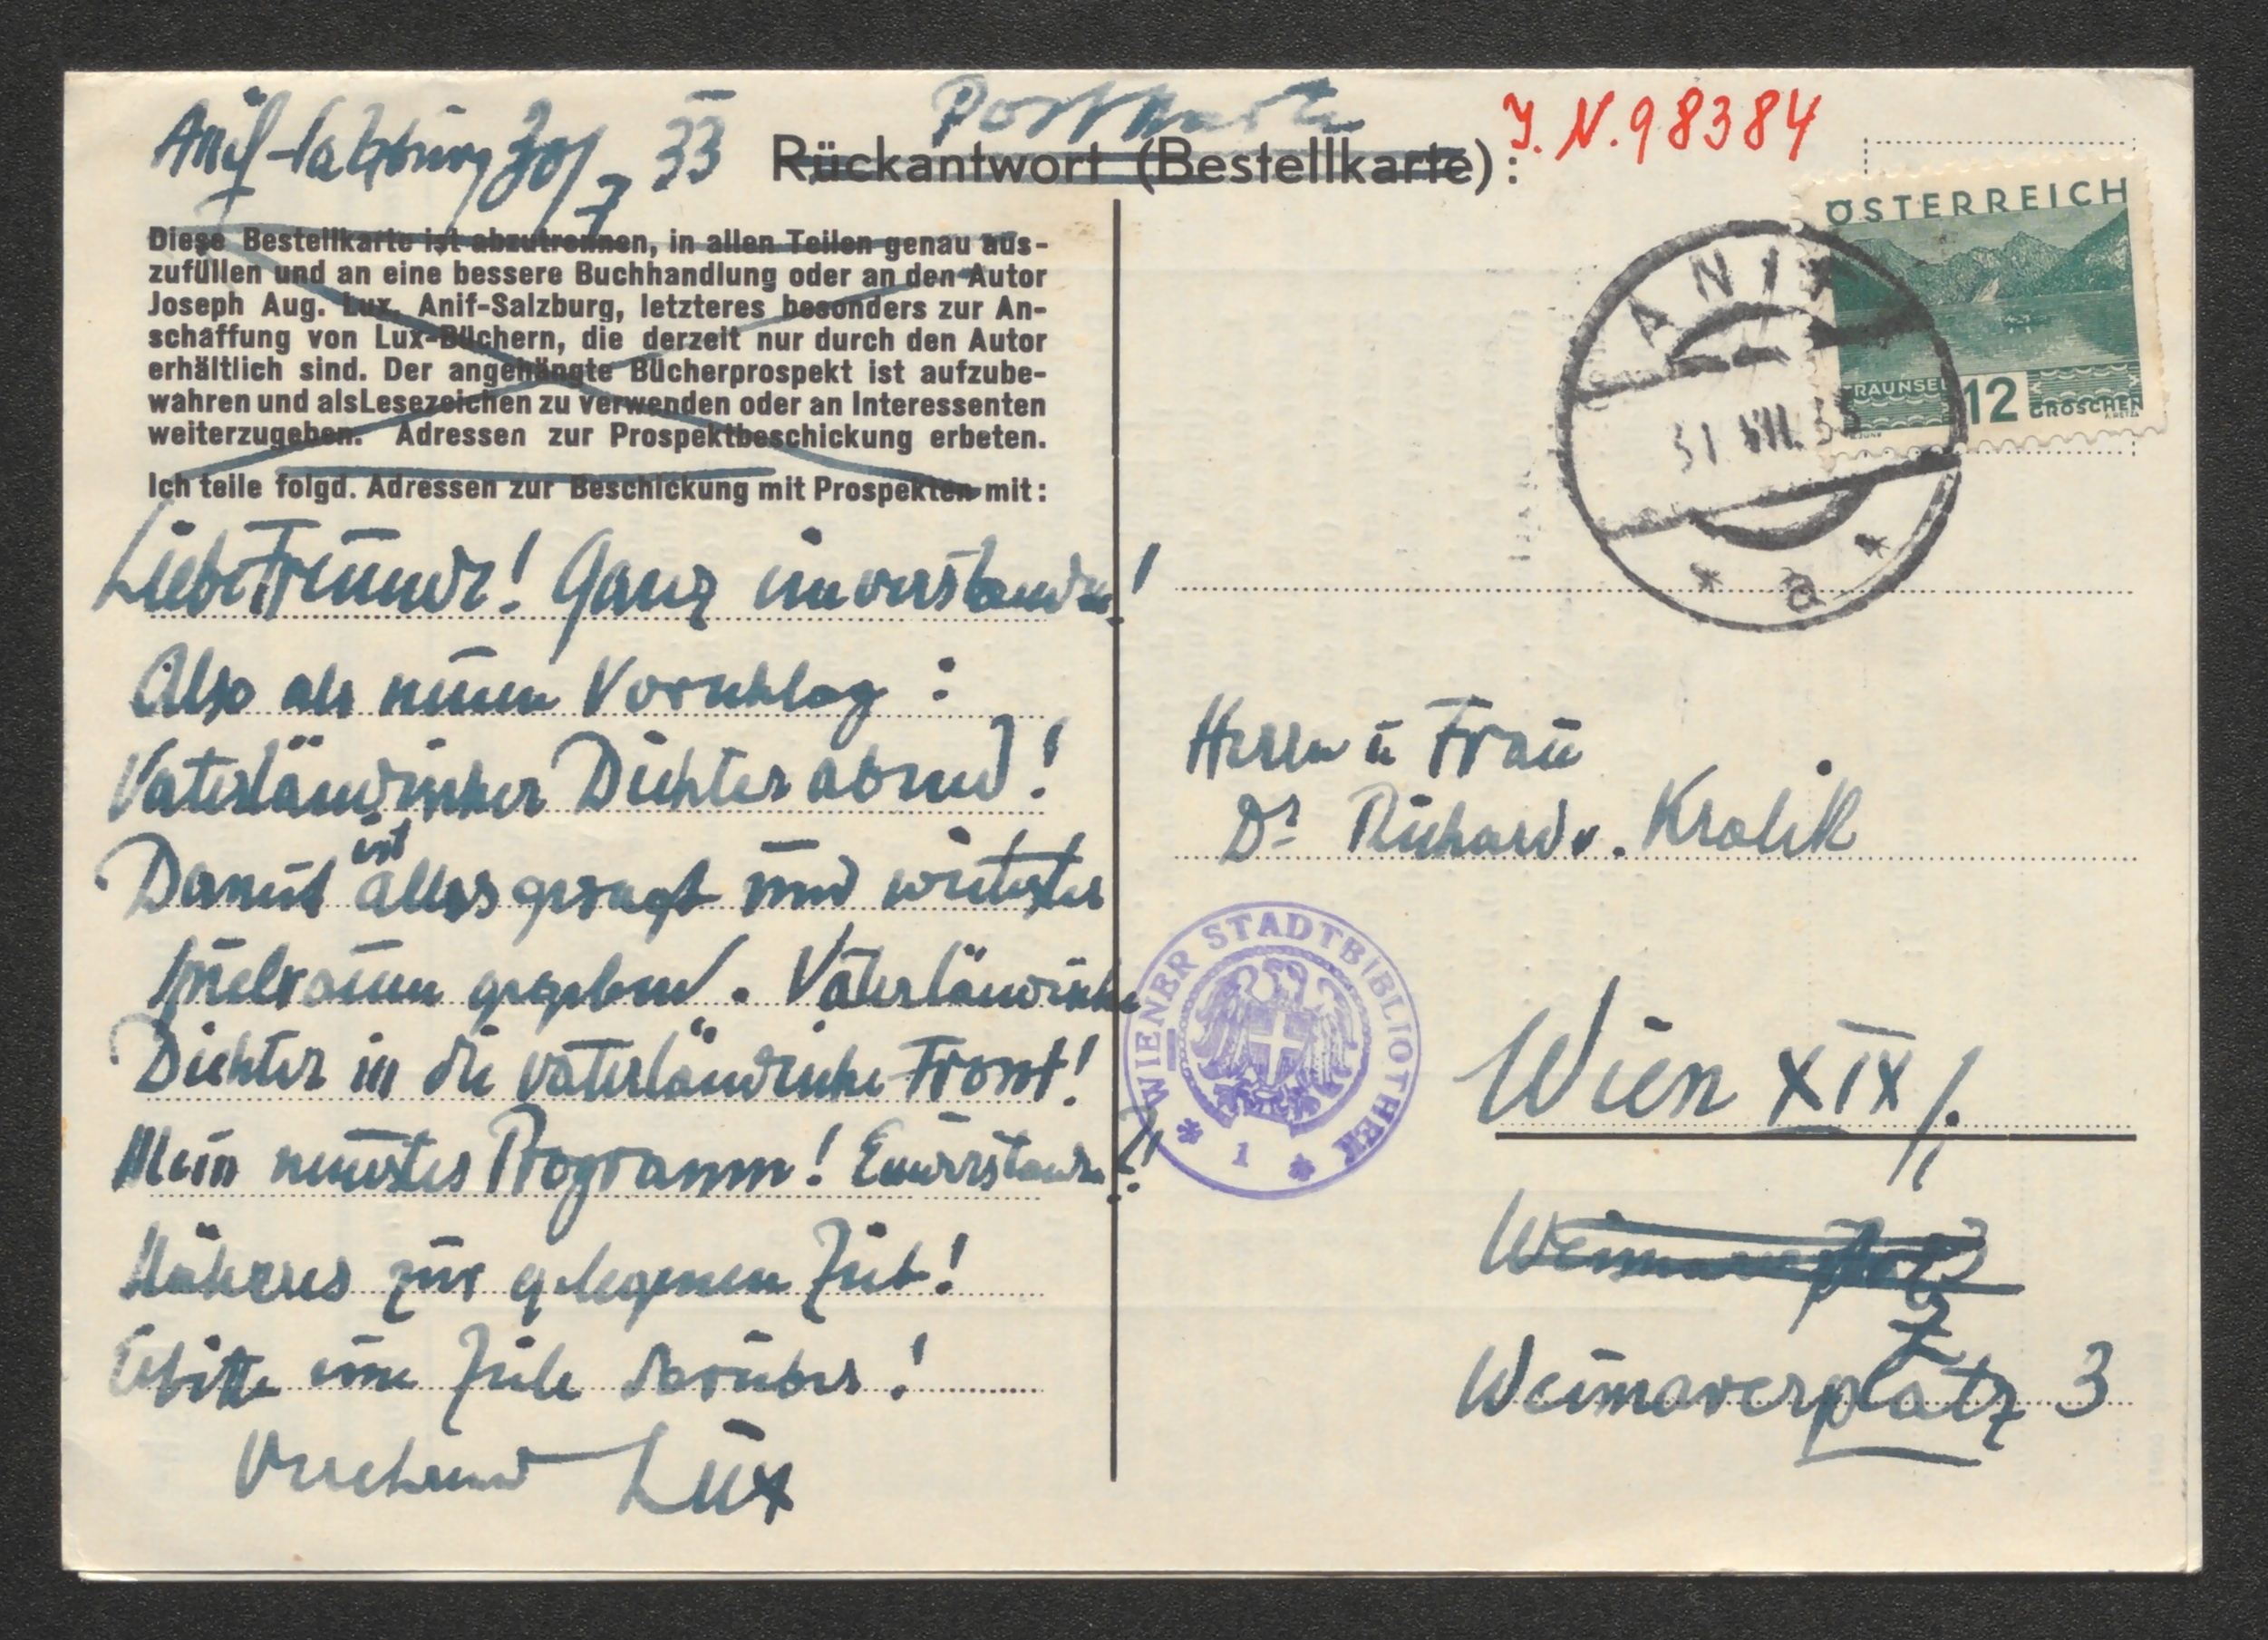 Anif-Salzburg 30/7 33
Postkarte
J. N. 98384
Rückantwort (Bestellkarte):
Diese Bestellkarte ist abzutrennen, in allen Teilen genau aus-
zufüllen und an eine bessere Buchhandlung oder an den Autor
Joseph Aug. Lux, Anif-Salzburg, letzteres besonders zur An-
schaffung von Lux-Büchern, die derzeit nur durch den Autor
erhältlich sind. Der angehängte Bücherprospekt ist aufzube-
wahren und als Lesezeichen zu verwenden oder an Interessenten
weiterzugeben. Adressen zur Prospektbeschickung erbeten.
Ich teile folgd. Adressen zur Beschickung mit Prospekten mit:
Liebe Freunde! Ganz einverstanden!
Also als neuen Vorschlag:
Vaterländischer Dichterabend!
Damit ist alles gesagt und weitester
Spielraum gegeben. Vaterländische
Dichter in die vaterländische Front!
Mein neuestes Programm! Einverstanden?!
Näheres zur gelegenen Zeit!
Erbitte eine Zeile darüber!
Verehrend Lux
ÖSTERREICH
TRAUNSEE
12 GROSCHEN
ANIF
31. VII. 33
* a *
Herrn u Frau
Dr Richard v. Kralik
WIENER STADTBIBLIOTHEK
* 1 *
Wien XIX/.
Weimarerplatz 3